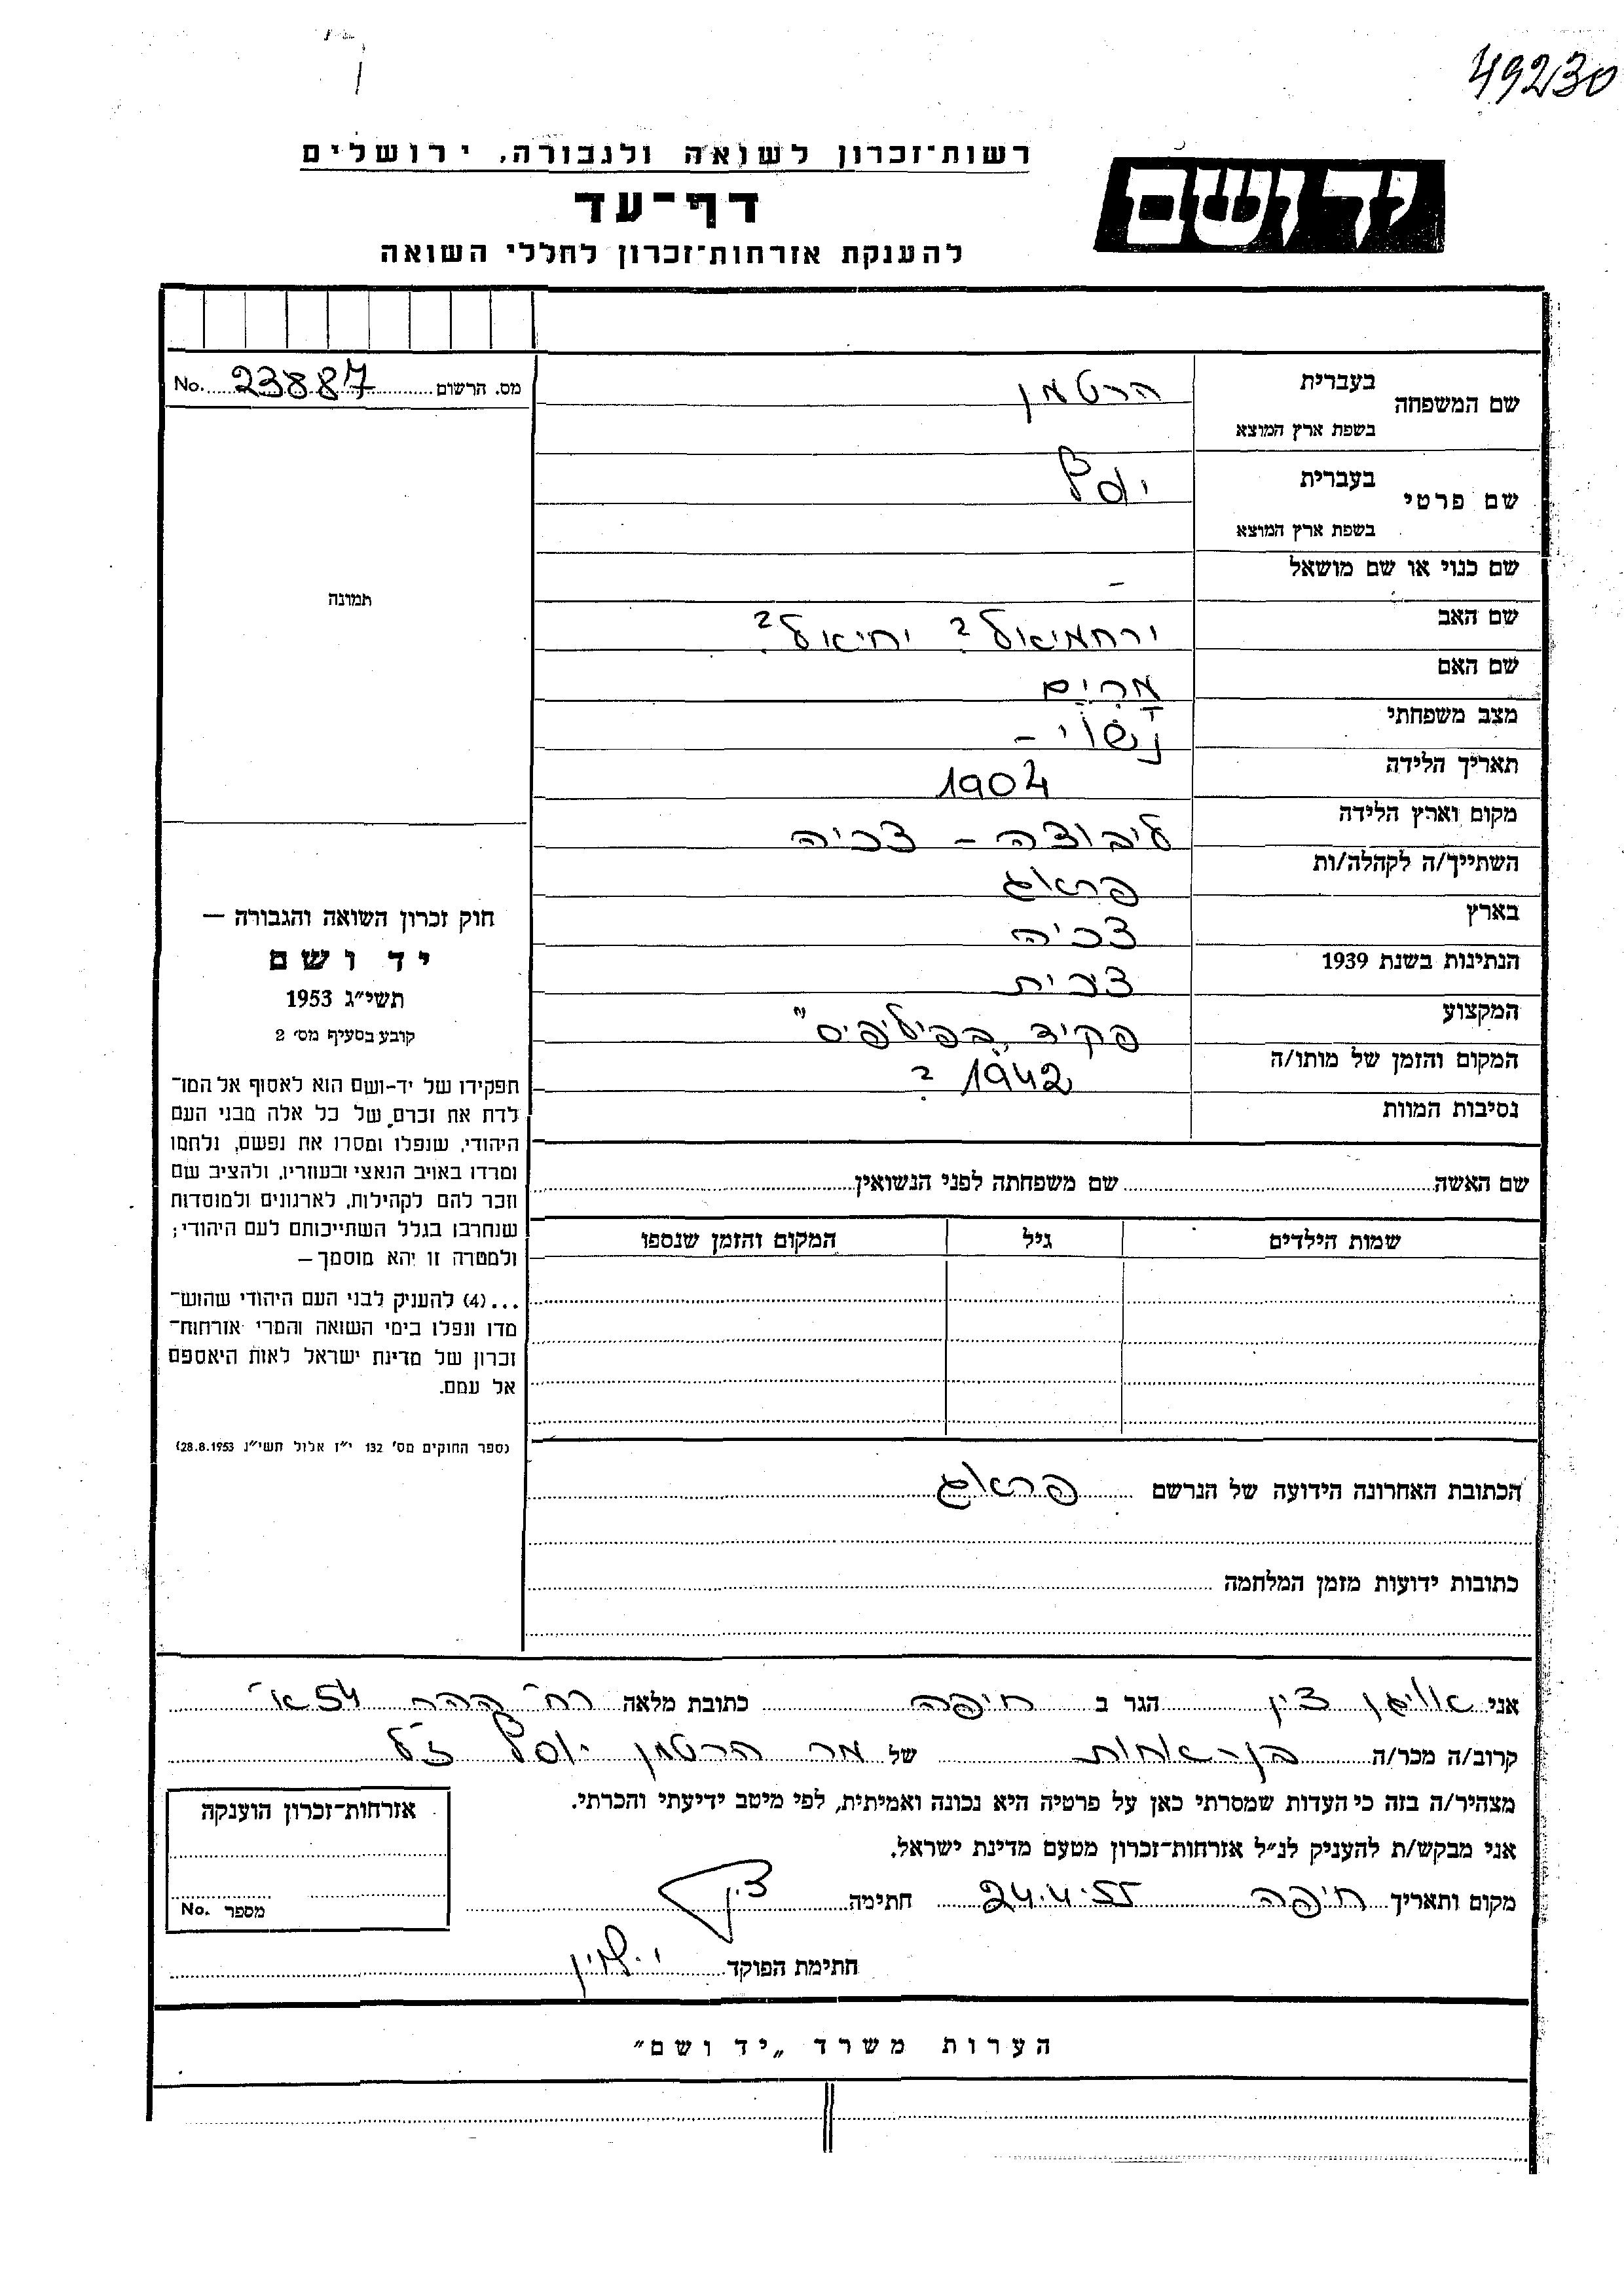 49230
רשות־זכרון לשואה ולגבורה, ירושלים
יד ושם
דף־עד
להענקת אזרחות־זכרון לחללי השואה
מס. הרשום 23887 No.
שם המשפחה
בעברית הרטמן
בשפת ארץ המוצא
שם פרטי
בעברית יוסף
בשפת ארץ המוצא
שם כנוי או שם מושאל –
שם האב ירחמיאל? יחיאל?
שם האם מרים
מצב משפחתי נשוי –
תאריך הלידה 1904
מקום וארץ הלידה ליבוצה – צכיה
השתייך/ה לקהלה/ות פראג
בארץ צכיה
הנתינות בשנת 1939 צכית
המקצוע פקיד „בפיליפס"
המקום והזמן של מותו/ה 1942 ?
נסיבות המוות
שם האשה שם משפחתה לפני הנשואין
שמות הילדים גיל המקום והזמן שנספו
תמונה
חוק זכרון השואה והגבורה —
יד ושם
תשי״ג 1953
קובע בסעיף מס׳ 2
תפקידו של יד-ושם הוא לאסוף אל המו־
לדת את זכרם של כל אלה מבני העם
היהודי, שנפלו ומסרו את נפשם, נלחמו
ומרדו באויב הנאצי ובעוזריו, ולהציב שם
וזכר להם לקהילות, לארגונים ולמוסדות
שנחרבו בגלל השתייכותם לעם היהודי;
ולמטרה זו יהא מוסמך —
...(4) להעניק לבני העם היהודי שהוש־
מדו ונפלו בימי השואה והמרי אזרחות־
זכרון של מדינת ישראל לאות היאספם
אל עמם.
(ספר החוקים מס׳ 132 י״ז אלול תשי״ג 28.8.1953)
הכתובת האחרונה הידועה של הנרשם פראג
כתובות ידועות מזמן המלחמה
אני צין הגר ב חיפה כתובת מלאה רח׳ 54 א׳
קרוב/ה מכר/ה בן־אחות של מר הרטמן יוסף ז״ל
מצהיר/ה בזה כי העדות שמסרתי כאן על פרטיה היא נכונה ואמיתית, לפי מיטב ידיעתי והכרתי.
אני מבקש/ת להעניק לנ״ל אזרחות־זכרון מטעם מדינת ישראל.
מקום ותאריך חיפה 24.4.55 חתימה צין
חתימת הפוקד
אזרחות־זכרון הוענקה
מספר No.
הערות משרד „יד ושם"